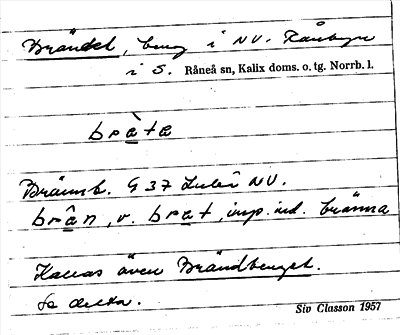 Brändet, berg i NV. Rånbyn
i S. Råneå sn, Kalix doms. o. tg. Norrb. l.
bràta
Brännb. G 37 Luleå NV.
brân, v. brat, imp. ind. bränna
Kallas även Brändberget.
Se detta.
Siv Classon 1957